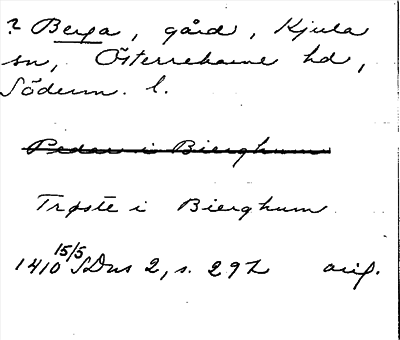 ? Berga, gård, Kjula
sn, Österrekarne hd,
Söderm. l.
Peder i Bierghum
Trøste i Bierghum
1410 15/5 SDns 2, s. 292 orig.